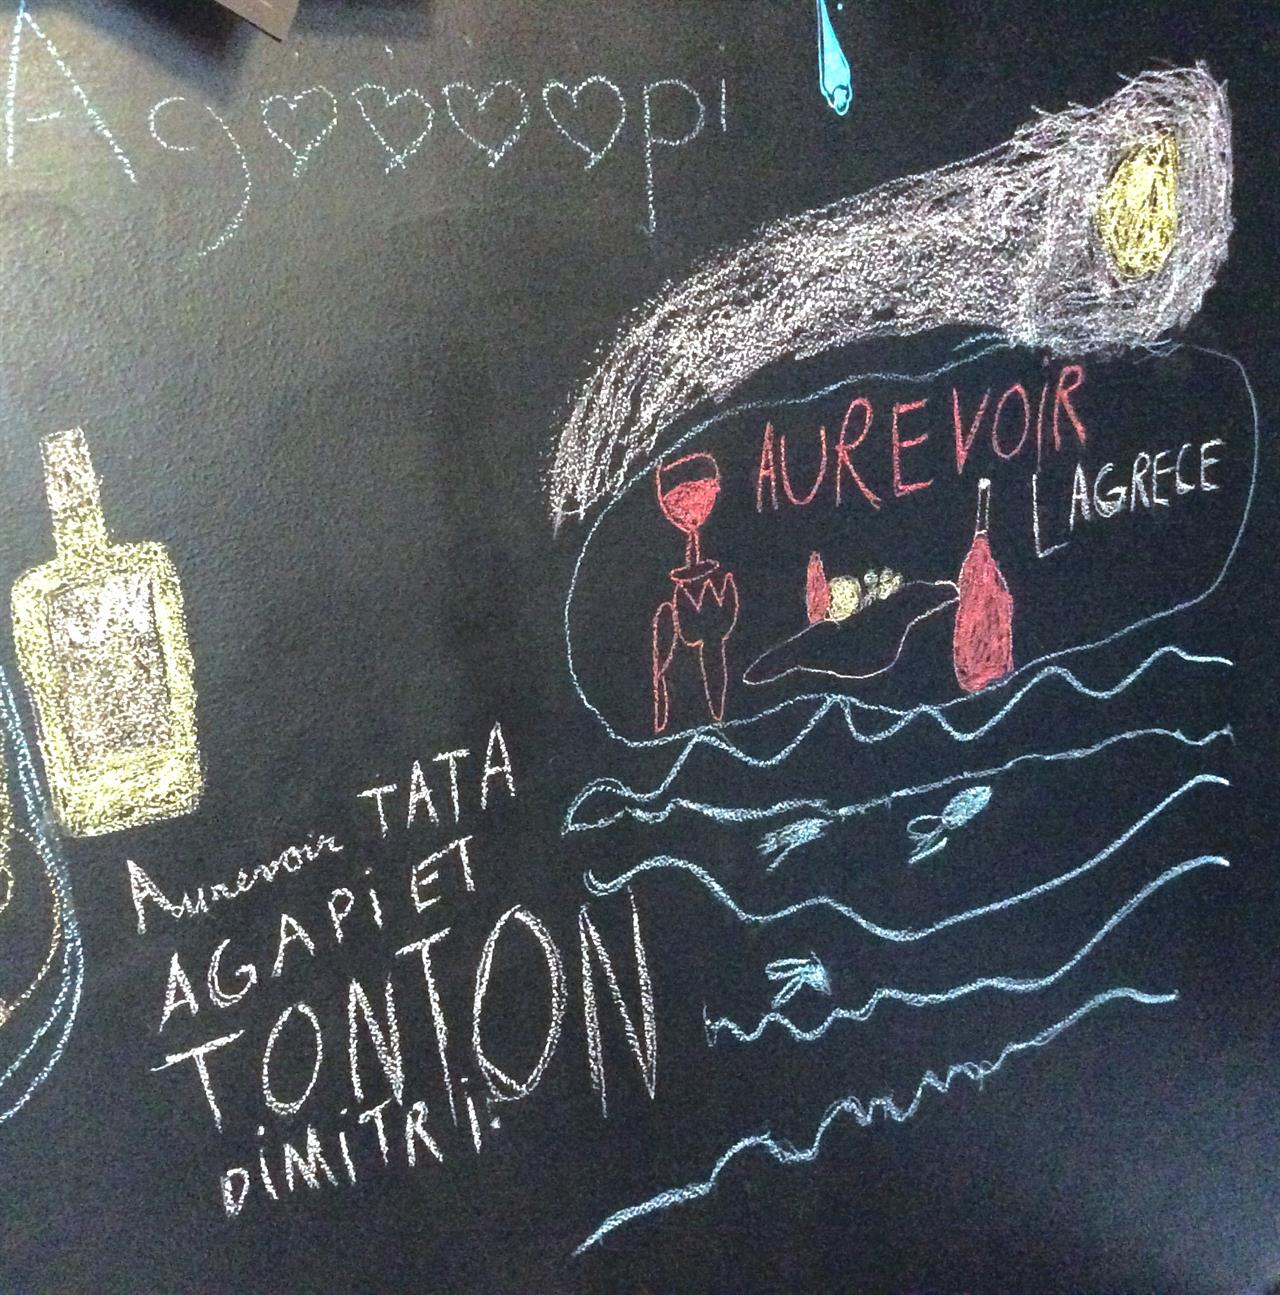 Ag♡♡♡♡pi
AUREVOiR
LAGRECE
Aurevoir TATA
AGAPi ET
TONTON
DiMiTRi.